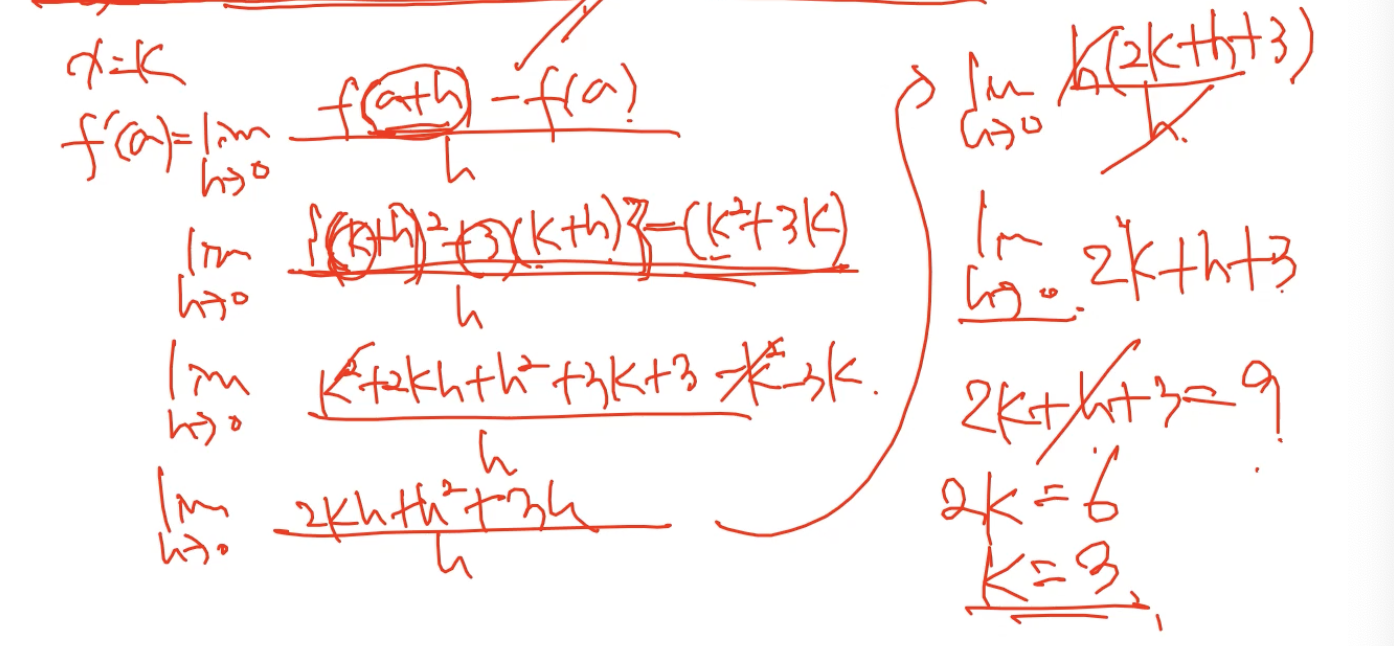 x=k
f'(a)=lim h→0 f(a+h)-f(a) / h
lim h→0 {(k+h)²+3(k+h)}-(k²+3k) / h
lim h→0 k²+2kh+h²+3k+3-k²-3k. / h
lim h→0 2kh+h²+3h / h
lim h→0 h(2k+h+3) / h.
lim h→0. 2k+h+3
2k+h+3=9
2k=6
k=3